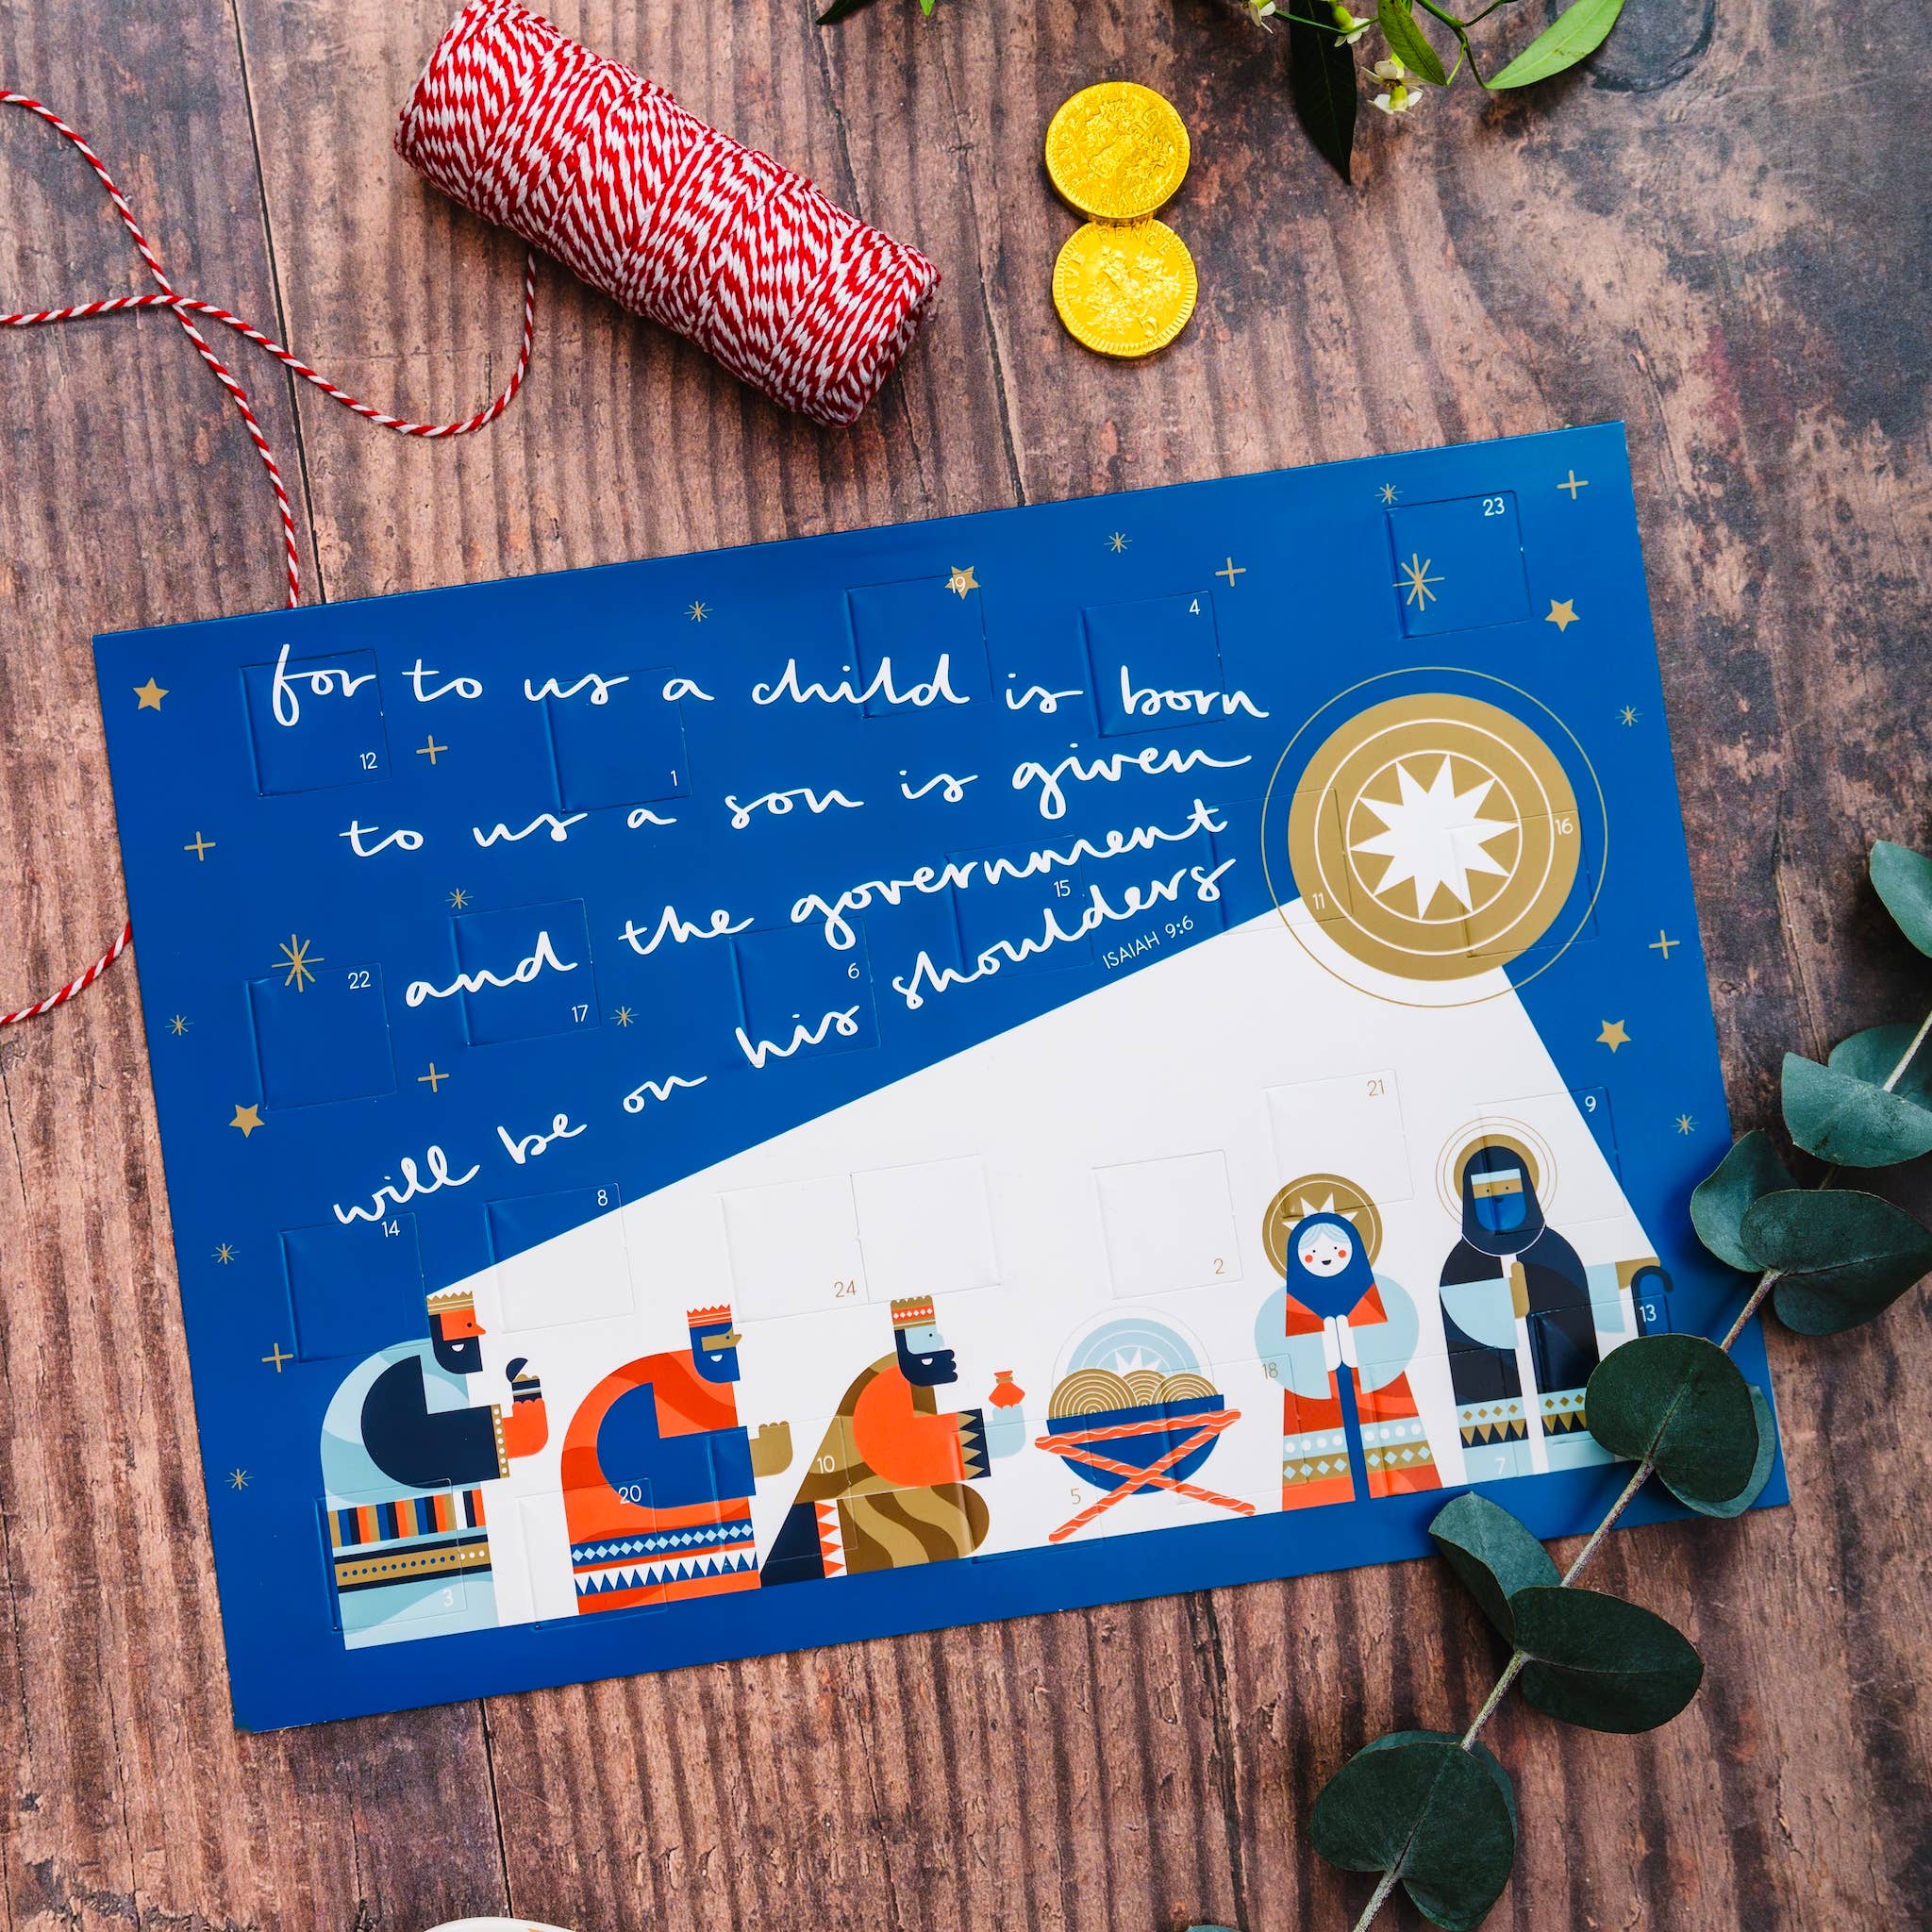 FIVE PENCE
23
19
4
for to us a child is born
12
1
to us a son is given
16
and the government
15
11
22
17
6
will be on his shoulders
ISAIAH 9:6
21
9
14
8
24
2
13
18
10
20
5
7
3